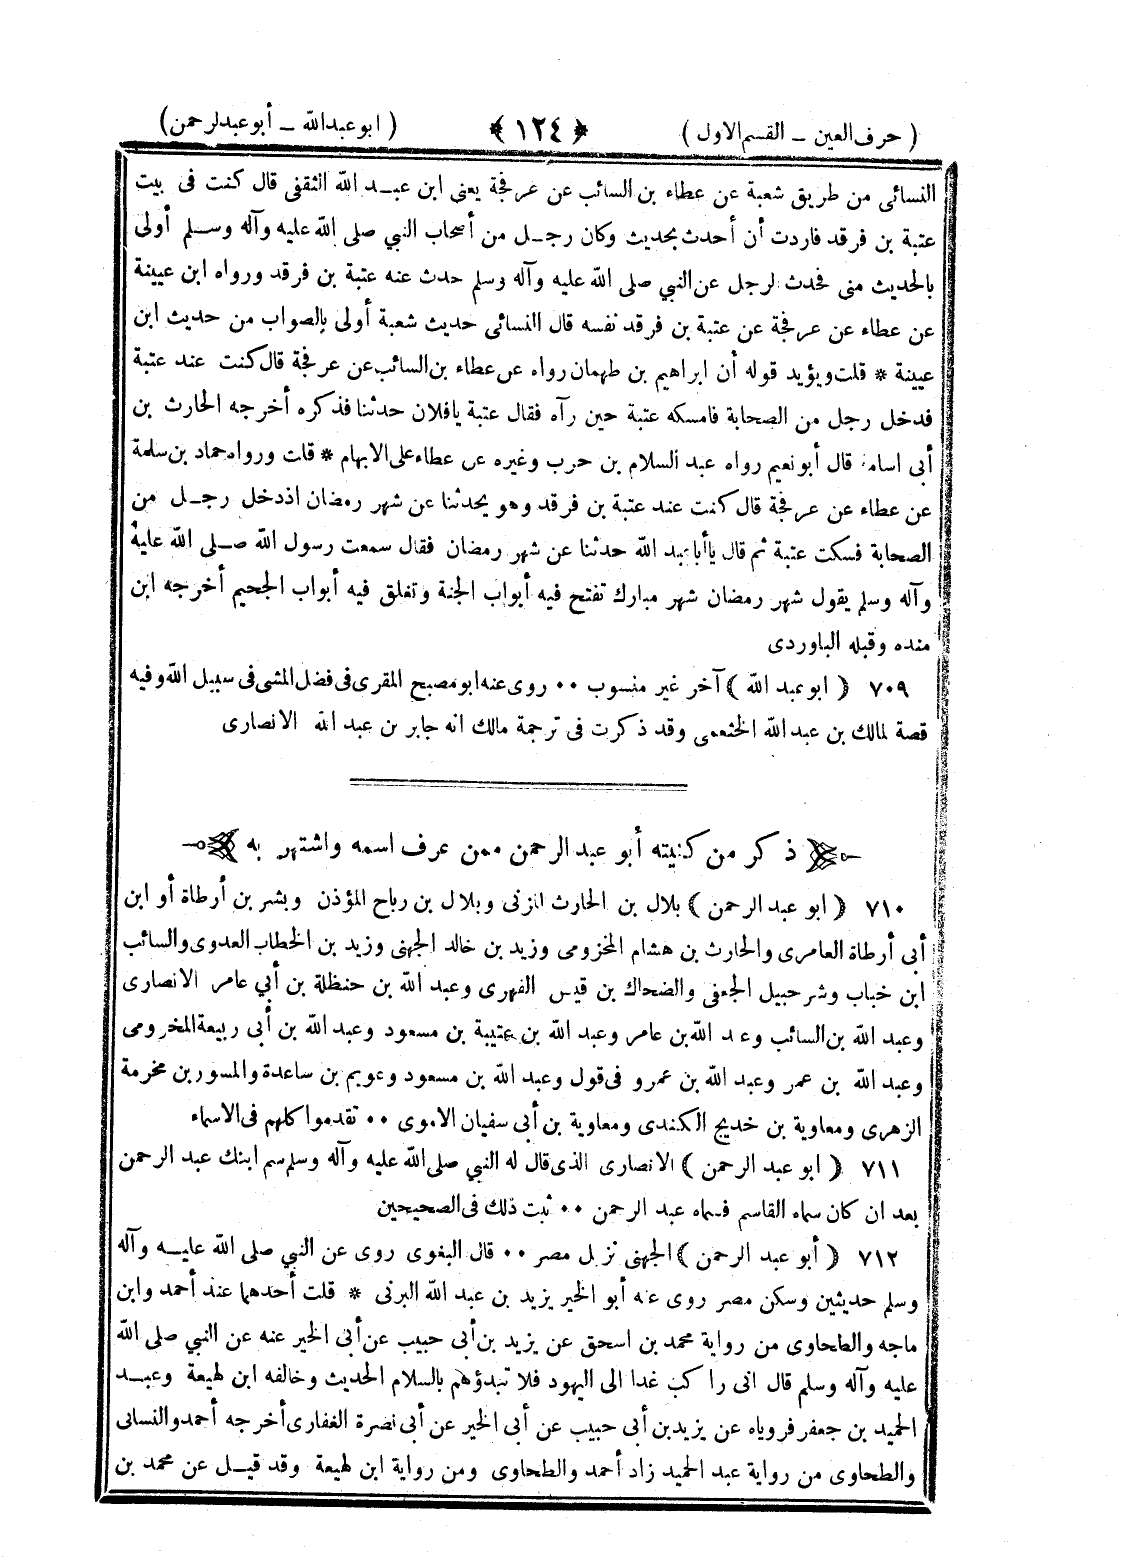 ( حرف العين ــ القسم الاول ) ﴿ ١٢٤ ﴾ ( ابو عبدالله ــ أبو عبدلرحمن )
النسائى من طريق شعبة عن عطاء بن السائب عن عرفجة يعنى ابن عبـد الله الثقفى قال كنت فى بيت
عتبة بن فرقد فاردت أن أحدث بحديث وكان رجـل من أصحاب النبي صلى الله عليه وآله وسـلم أولى
بالحديث منى فحدث لرجل عن النبي صلى الله عليه وآله وسلم حدث عنه عتبة بن فرقد ورواه ابن عيينة
عن عطاء عن عرفجة عن عتبة بن فرقد نفسه قال النسائى حديث شعبة أولى بالصواب من حديث ابن
عيينة * قلت ويؤيد قوله أن ابراهيم بن طهمان رواه عن عطاء بن السائب عن عرفجة قال كنت عند عتبة
فدخل رجل من الصحابة فامسكه عتبة حين رآه فقال عتبة يافلان حدثنا فذكره أخرجه الحارث بن
أبى اسامة قال أبو نعيم رواه عبد السلام بن حرب وغيره عن عطاء على الابهام * قلت ورواه حماد بن سلمة
عن عطاء عن عرفجة قال كنت عند عتبة بن فرقد وهو يحدثنا عن شهر رمضان اذ دخل رجـل من
الصحابة فسكت عتبة ثم قال ياأبا عبد الله حدثنا عن شهر رمضان فقال سمعت رسول الله صـلى الله عليه
وآله وسلم يقول شهر رمضان شهر مبارك تفتح فيه أبواب الجنة وتغلق فيه أبواب الجحيم أخرجه ابن
منده وقبله الباوردى
٧٠٩ ( ابو عبد الله ) آخر غير منسوب ٠٠ روى عنه ابو مصبح المقرى فى فضل المشى فى سبيل الله وفيه
قصة لمالك بن عبد الله الخثعمى وقد ذكرت فى ترجمة مالك انه جابر بن عبد الله الانصارى
ذكر من كنيته أبو عبد الرحمن ممن عرف اسمه واشتهر به
٧١٠ ( ابو عبد الرحمن ) بلال بن الحارث المزنى وبلال بن رباح المؤذن وبشر بن أرطاة أو ابن
أبى أرطاة العامرى والحارث بن هشام المخزومى وزيد بن خالد الجهنى وزيد بن الخطاب العدوى والسائب
ابن خباب وشرحبيل الجعفى والضحاك بن قيس الفهرى وعبد الله بن حنظلة بن أبي عامر الانصارى
وعبد الله بن السائب وعبد الله بن عامر وعبد الله بن عتيبة بن مسعود وعبد الله بن أبى ربيعة المخرومى
وعبد الله بن عمر وعبد الله بن عمرو فى قول وعبد الله بن مسعود وعويم بن ساعدة والمسور بن مخرمة
الزهرى ومعاوية بن خديج الكندى ومعاوية بن أبى سفيان الاموى ٠٠ تقدموا كلهم فى الاسماء
٧١١ ( ابو عبد الرحمن ) الانصارى الذى قال له النبي صلى الله عليه وآله وسلم سم ابنك عبد الرحمن
بعد ان كان سماه القاسم فسماه عبد الرحمن ٠٠ ثبت ذلك فى الصحيحين
٧١٢ ( أبو عبد الرحمن ) الجهنى نزيل مصر ٠٠ قال البغوى روى عن النبي صلى الله عليـه وآله
وسلم حديثين وسكن مصر روى عنه أبو الخير يزيد بن عبد الله البرنى * قلت أحدهما عند أحمد وابن
ماجه والطحاوى من رواية محمد بن اسحق عن يزيد بن أبى حبيب عن أبى الخير عنه عن النبي صلى الله
عليه وآله وسلم قال انى راكب غدا الى اليهود فلا تبدؤهم بالسلام الحديث وخالفه ابن لهيعة وعبـد
الحميد بن جعفر فروياه عن يزيد بن أبى حبيب عن أبى الخير عن أبى نصرة الغفارى أخرجه أحمد والنسائى
والطحاوى من رواية عبد الحميد زاد أحمد والطحاوى ومن رواية ابن لهيعة وقد قيـل عن محمد بن